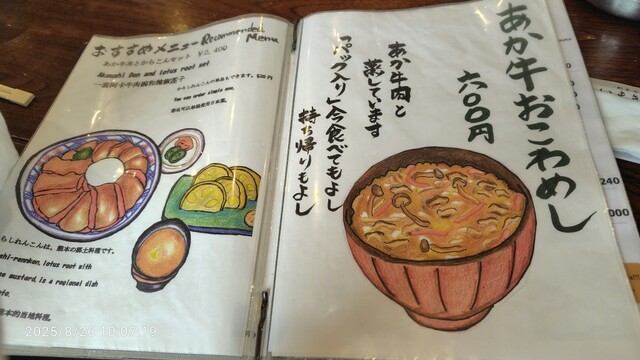 おすすめメニュー Recommended Menu
あか牛丼とからこんセット ¥2,400
Akaushi Don and lotus root set
You can order single one.
らしれんこんは、熊本の郷土料理です。
shi-rennkon, lotus root with
mustard, is a regional dish
あか牛おこわめし
六〇〇円
あか牛肉と
蒸しています
「パック入り」今食べてもよし
持ち帰りもよし
240
000
2025/8/26 10:07:19